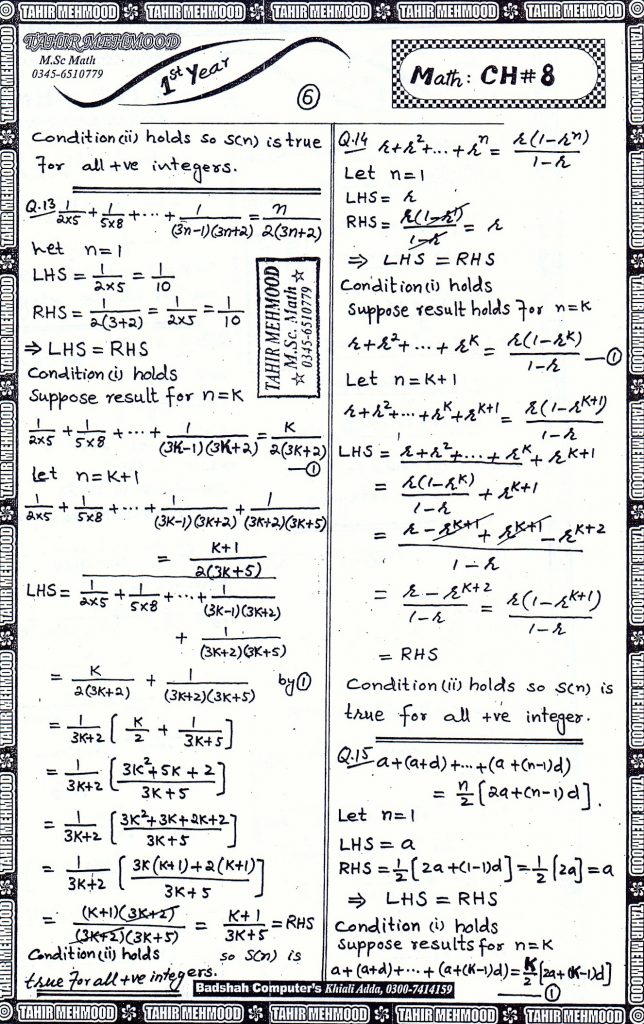 TAHIR MEHMOOD
M.Sc Math
0345-6510779
1st Year
6
Math: CH#8
Condition(ii) holds so S(n) is true
for all +ve integers.
Q.13 1/(2×5) + 1/(5×8) + ··· + 1/((3n-1)(3n+2)) = n/(2(3n+2))
Let n=1
LHS = 1/(2×5) = 1/10
RHS = 1/(2(3+2)) = 1/(2×5) = 1/10
⇒ LHS = RHS
Condition(i) holds
Suppose result for n=K
1/(2×5) + 1/(5×8) + ··· + 1/((3K-1)(3K+2)) = K/(2(3K+2)) —①
Let n=K+1
1/(2×5) + 1/(5×8) + ··· + 1/((3K-1)(3K+2)) + 1/((3K+2)(3K+5))
= (K+1)/(2(3K+5))
LHS = 1/(2×5) + 1/(5×8) + ··· + 1/((3K-1)(3K+2))
+ 1/((3K+2)(3K+5))
= K/(2(3K+2)) + 1/((3K+2)(3K+5)) by①
= 1/(3K+2) [K/2 + 1/(3K+5)]
= 1/(3K+2) [(3K²+5K+2)/(3K+5)]
= 1/(3K+2) [(3K²+3K+2K+2)/(3K+5)]
= 1/(3K+2) [(3K(K+1)+2(K+1))/(3K+5)]
= ((K+1)(3K+2))/((3K+2)(3K+5)) = (K+1)/(3K+5) = RHS
Condition(ii) holds so S(n) is
true for all +ve integers.
TAHIR MEHMOOD
M.Sc. Math
0345-6510779
Q.14 r+r²+···+rⁿ = r(1-rⁿ)/(1-r)
Let n=1
LHS = r
RHS = r(1-r¹)/(1-r) = r
⇒ LHS = RHS
Condition(i) holds
Suppose result holds for n=K
r+r²+···+r^K = r(1-r^K)/(1-r) —①
Let n=K+1
r+r²+···+r^K+r^(K+1) = r(1-r^(K+1))/(1-r)
LHS = r+r²+···+r^K + r^(K+1)
= r(1-r^K)/(1-r) + r^(K+1)
= (r-r^(K+1)+r^(K+1)-r^(K+2))/(1-r)
= (r-r^(K+2))/(1-r) = r(1-r^(K+1))/(1-r)
= RHS
Condition(ii) holds so S(n) is
true for all +ve integer.
Q.15 a+(a+d)+···+(a+(n-1)d)
= n/2 [2a+(n-1)d].
Let n=1
LHS = a
RHS = 1/2 [2a+(1-1)d] = 1/2 [2a] = a
⇒ LHS = RHS
Condition (i) holds
Suppose results for n=K
a+(a+d)+···+(a+(K-1)d) = K/2 [2a+(K-1)d] —①
Badshah Computer's Khiali Adda, 0300-7414159